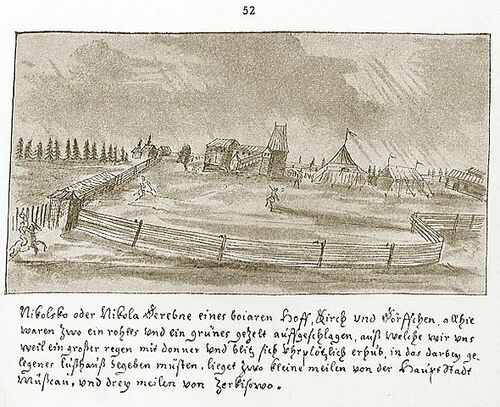 52
Nikolsko oder Nikola Derebne eines boiaren Hoff, Kirch und Dörffchen, alhie
waren zwo ein rohtes und ein grünes gezelt auffgeschlagen, auß welche wir uns
weil ein großer regen mit donner und blitz sich uhrplötzlich erhub, in das darbey ge-
legenes Lusthauß begeben musten, lieget zwo kleine meilen von der Haupt Stadt
Mußcau, und drey meilen von Zerkisowo.